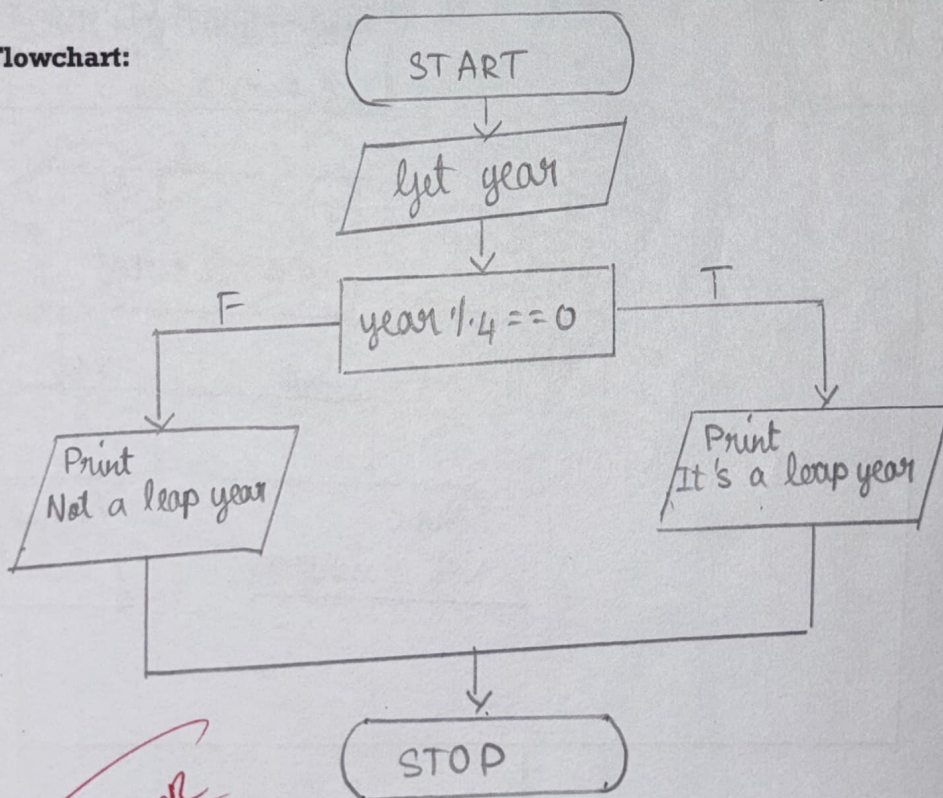 lowchart:
START
Get year
F
T
year % 4 == 0
Print
Not a leap year
Print
It's a leap year
STOP